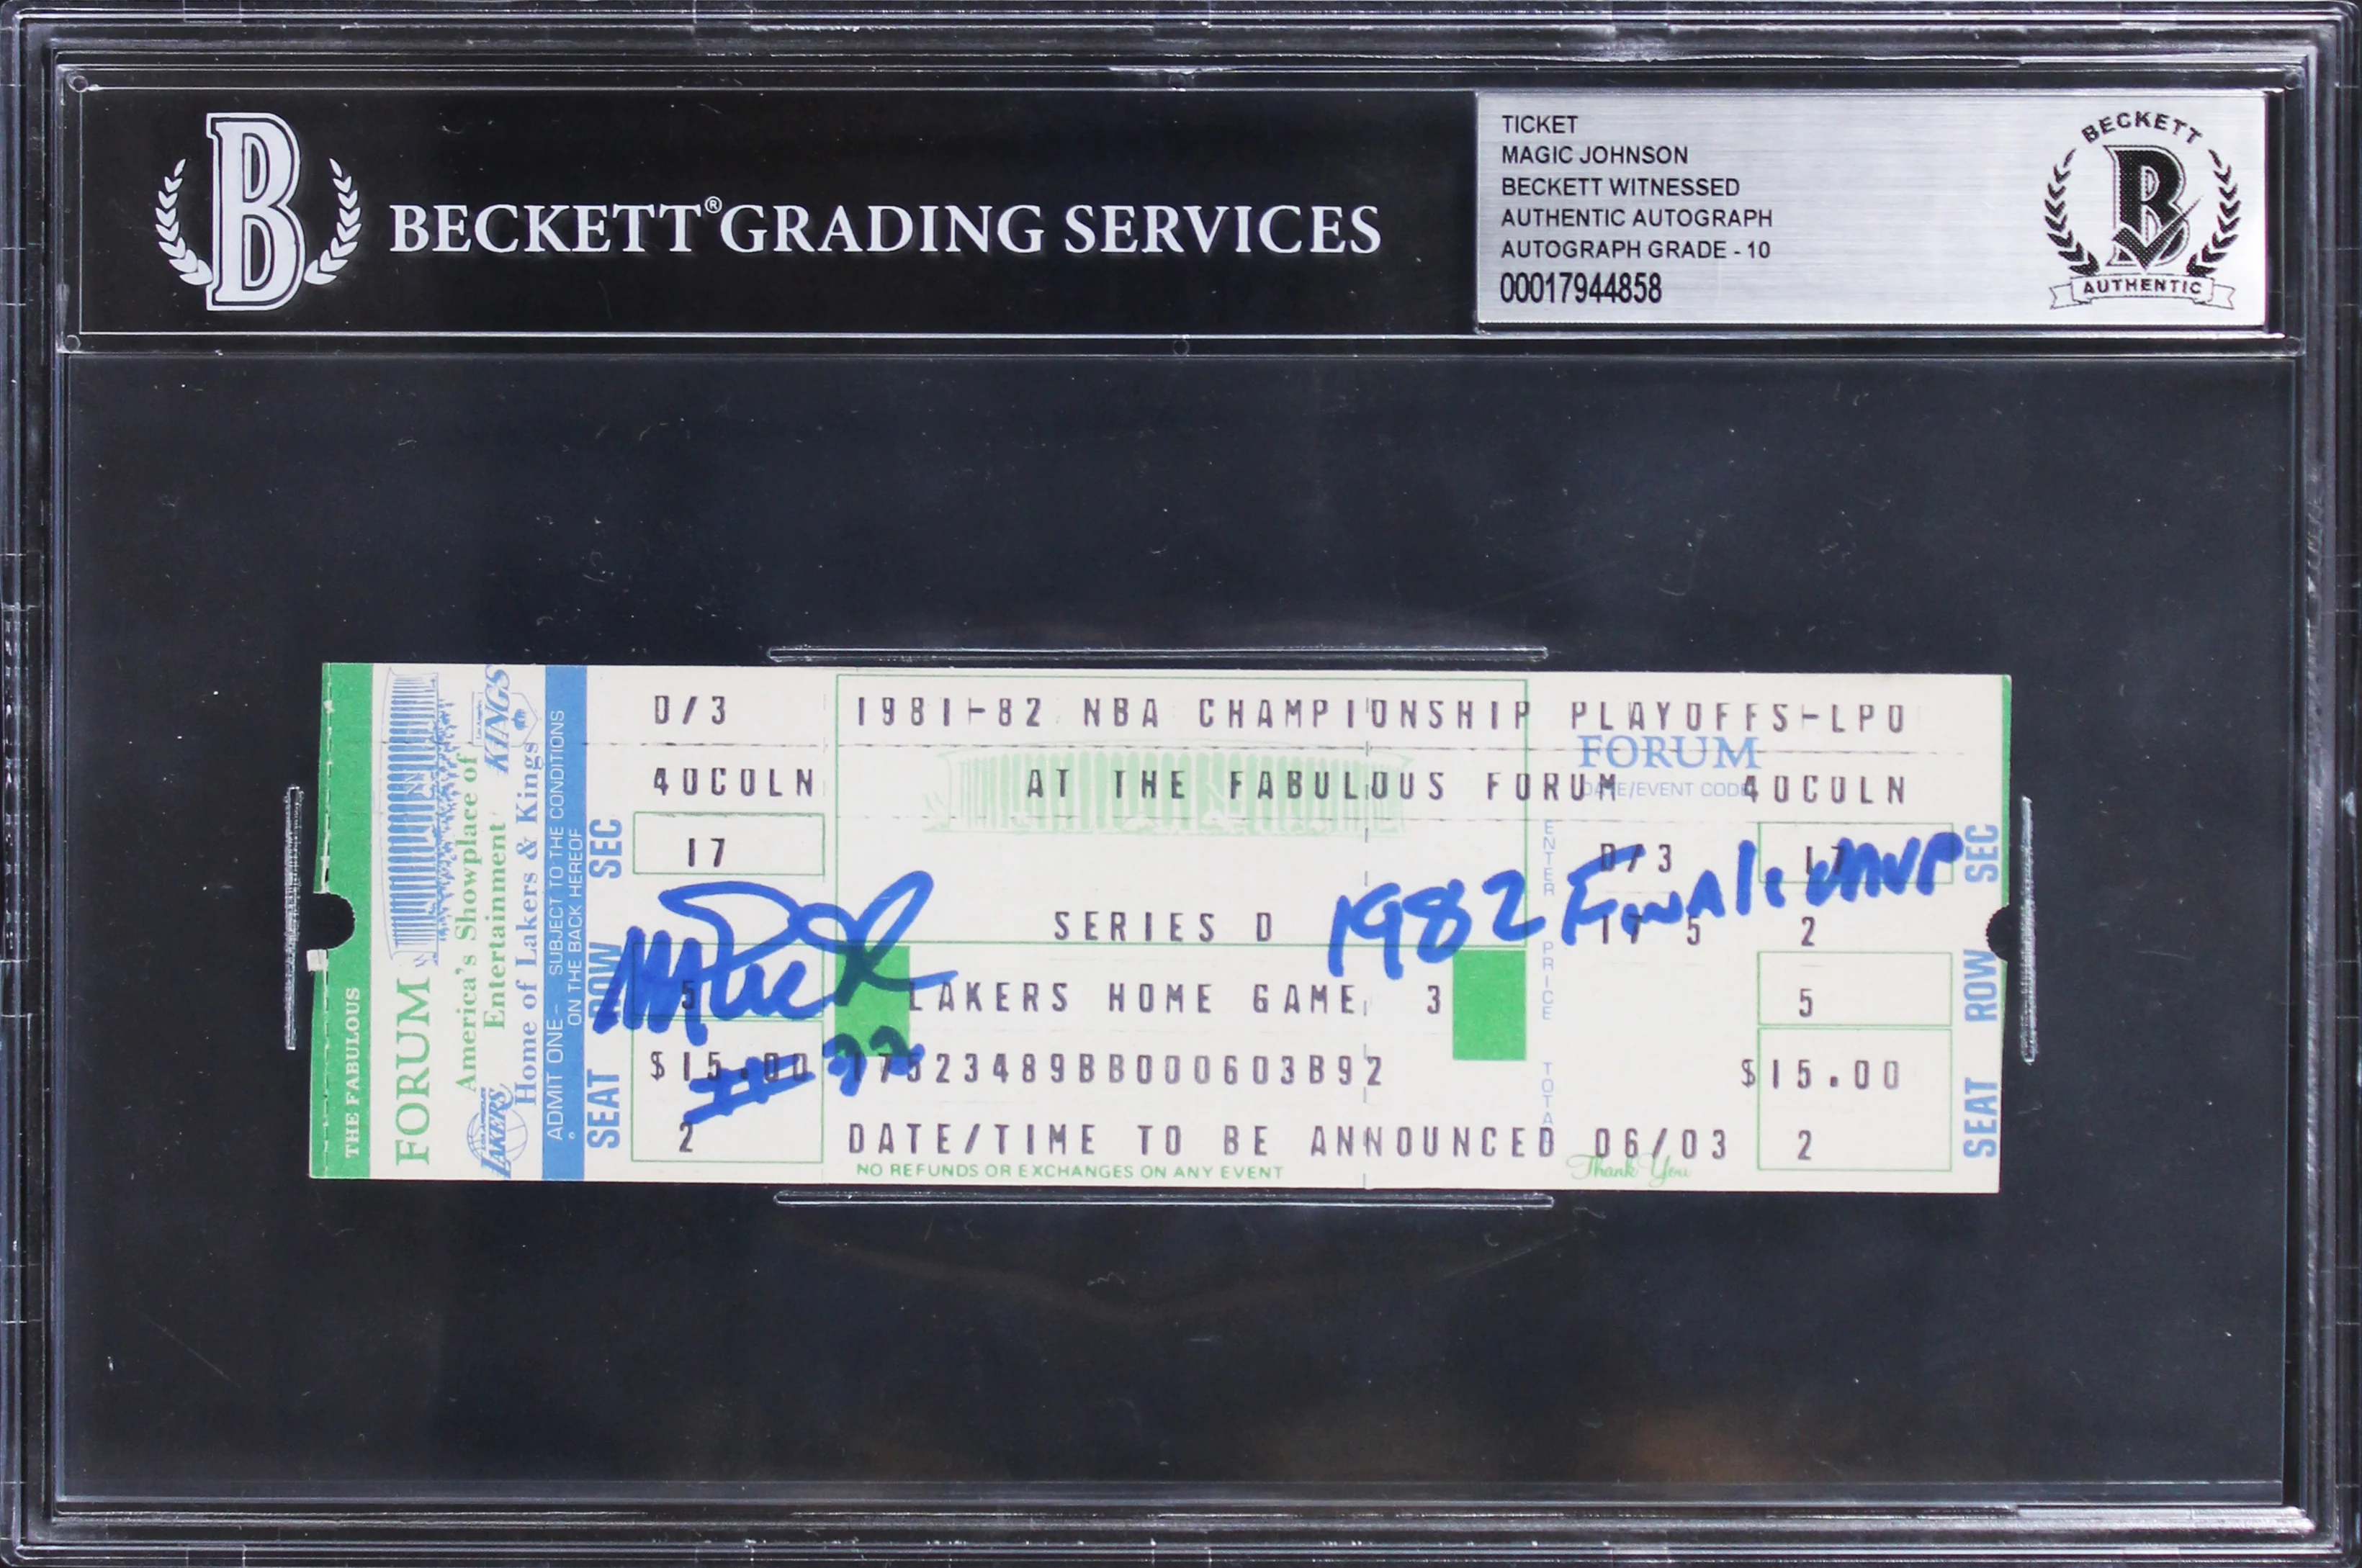 BECKETT® GRADING SERVICES
TICKET
MAGIC JOHNSON
BECKETT WITNESSED
AUTHENTIC AUTOGRAPH
AUTOGRAPH GRADE - 10
00017944858
BECKETT
B
AUTHENTIC
THE FABULOUS
FORUM
America's Showplace of
Entertainment
Home of Lakers & Kings
KINGS
LAKERS
ADMIT ONE - SUBJECT TO THE CONDITIONS
ON THE BACK HEREOF
SEC
ROW
SEAT
D/3
40COLN
17
5
$15.00
2
1981-82 NBA CHAMPIONSHIP PLAYOFFS-LPO
FORUM
DATE/EVENT CODE
AT THE FABULOUS FORUM 40COLN
SERIES D
LAKERS HOME GAME 3
17523489BB000603B92
DATE/TIME TO BE ANNOUNCED 06/03
NO REFUNDS OR EXCHANGES ON ANY EVENT
Thank You
ENTER PRICE
TOTAL
D/3 17
17 5 2
5
$15.00
2
SEC
ROW
SEAT
Magic
#32
1982 Finals MVP